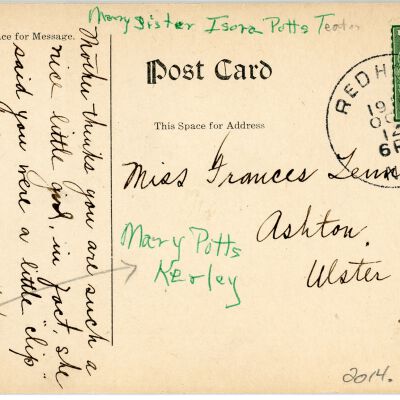 Mary Sister Isora Potts Teator
ce for Message.
Mother thinks you are such a
nice little girl, in fact, she
said you were a little "clip"
Post Card
This Space for Address
RED H
19
OC
12
6P
Miss Frances
Ashton.
Ulster
Mary Potts
Kerley
2014.